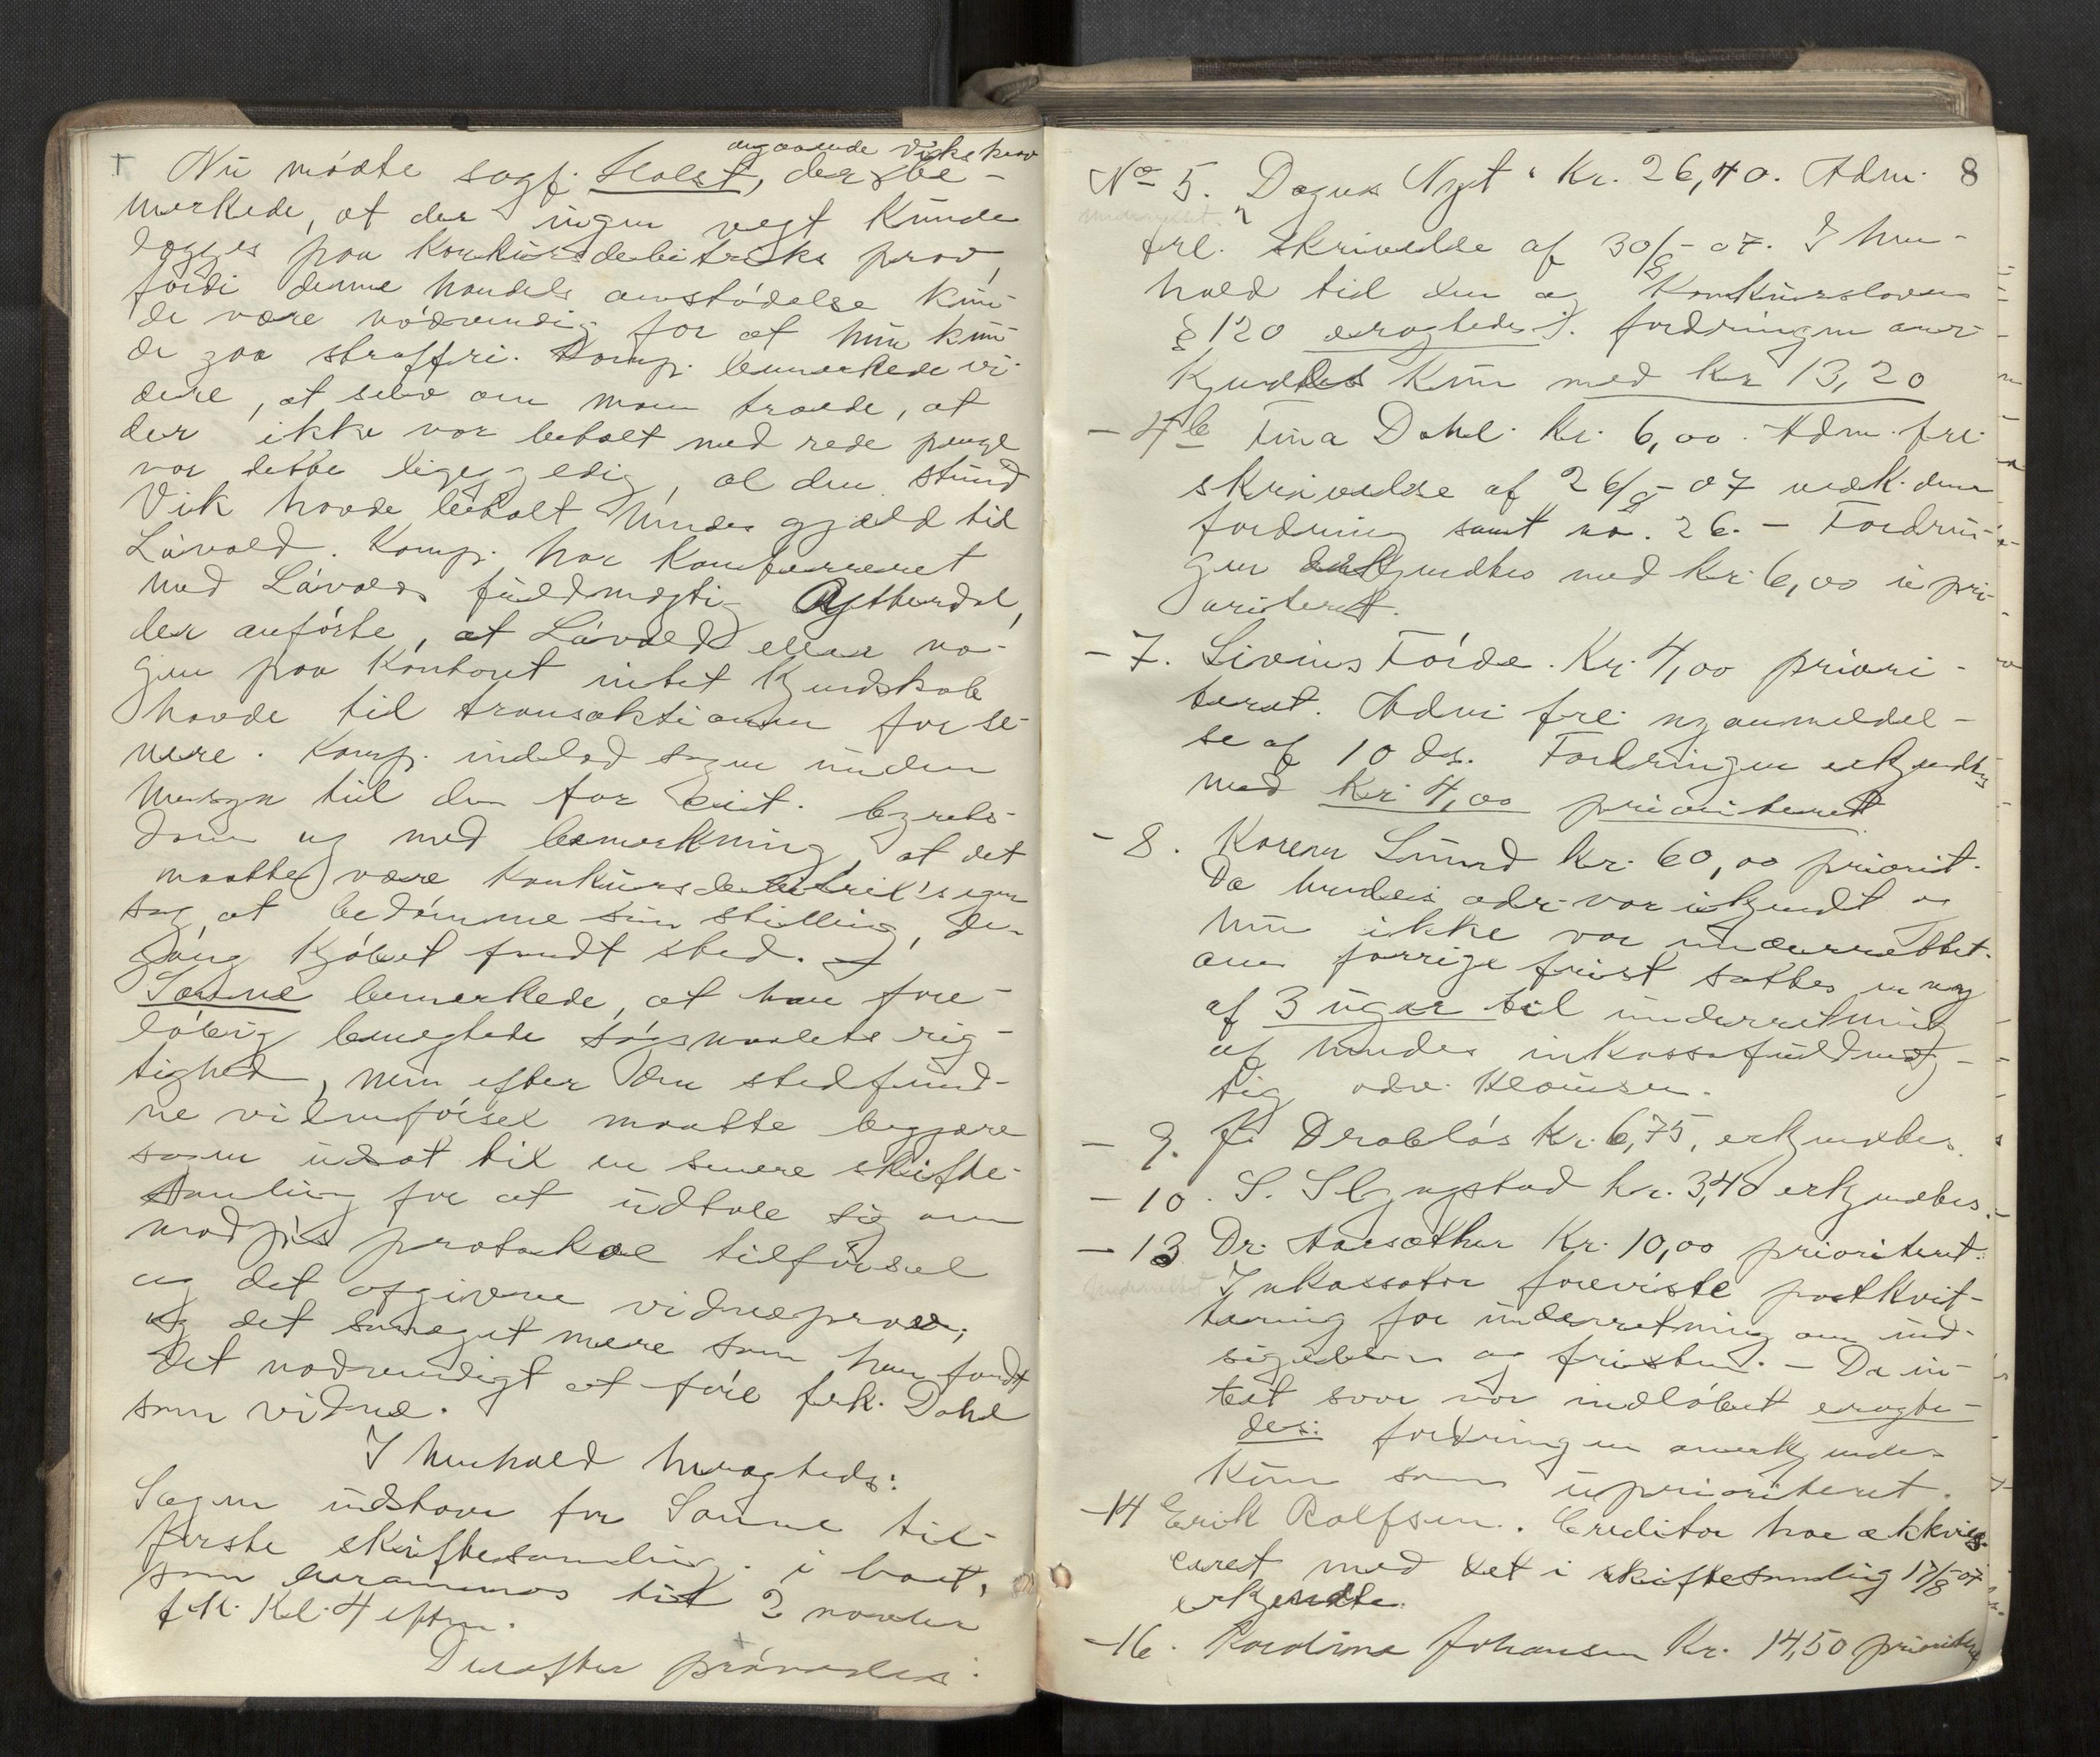 angaaende Viks krav
Nu mödte sagf. Holst, der be-
merkede, at der ingen vegt kunde
lægges paa konkursdebitricks prov,
fordi denne handels omstödelse kun-
de være nödvendig for at hun kun-
de gaa straffri. Komp. bemerkede vi-
dere, at selv om man troede, at
der ikke var betalt med rede penge
var dette ligegyldig, al den stund
Vik havde betalt hendes gjæld til
Lövold. Komp. har konfereret
med Lövolds fuldmægtig
der anförte, at Lövold eller no-
gen paa kontoret intet kjendskab
havde til transaktionen for se-
nere. Komp. indlod sagen under
hensyn til den for cit. byrets-
dom og med bemerkning, at det
maatte være konkursdebitrix's egen
sag at bedömme sin stilling, den-
gang kjöbet fandt sted.
Sanne bemerkede, at han fore-
löbig benegtede sögsmaalets rig-
tighed, men efter den stedfund-
ne vidneförsel maatte begjære
sagen udsat til en senere skifte-
samling for at udtale sig om
modp's protokol tilförsel
og det afgivne vidneprov,
og det saameget mere som han fandt
det nödvendigt at före frk. Dahl
som vidne.
I henhold hertil
Sagen udstaar for Sanne til
förste skiftesamling i boet,
som berammes til 2 novbr
f.k. Kl. 4 eftm.
Derefter prövedes:
8
No 5. "Dagens Nyt" Kr. 26,40. Adm.
underrettet
frl. skrivelse af 30/8-07. I hen-
hold til den og Konkursloven
§ 120 eragtedes: fordringen aner-
kjendtes kun med kr 13,20
- 4b Tina Dahl. Kr. 6,00. Adm. frl.
skrivelse af 26/8-07 vedk. denne
fordring samt no. 26. - Fordrin-
gen erkjendtes med kr. 6,00 upri-
oriteret.
- 7. Sivius Förde. Kr. 4,00 priori-
teret. Adm. frl. ny anmeldel-
se af 10 ds. Fordringen erkjendtes
med Kr. 4,00 prioriteret
- 8. Karen Lund kr. 60,00 priorit.
Da hendes adr. var ukjendt og
hun ikke var underrettet
om forrige frist sattes en ny
af 3 uger til underretning
af hendes inkassofuldmæg-
tig adv. Klausen.
- 9. Drabløs Kr. 6,75, erkjendtes.
- 10. S. Slyngstad kr. 3,40 erkjendtes.
- 13 Dr. Aarsæther Kr. 10,00 prioriteret.
underrettet
Inkassator foreviste postkvit-
tering for underretning om ind-
sigelsen og fristen. - Da in-
tet svar var indlöbet eragte-
des: fordringen anerkjendes
kun som uprioriteret.
-14 Erik Rolfsen. Creditor har akkvies-
ceret med det i skiftesamling 17/8-07
erkjendte.
-16. Karoline Johansen Kr. 14,50 prioriteret